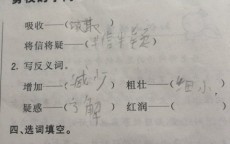 吸收——(吸取)
将信将疑——(半信半疑)
2. 写反义词。
增加——(减少) 粗壮——(细小)
疑惑——(了解) 红润——(
四、选词填空。